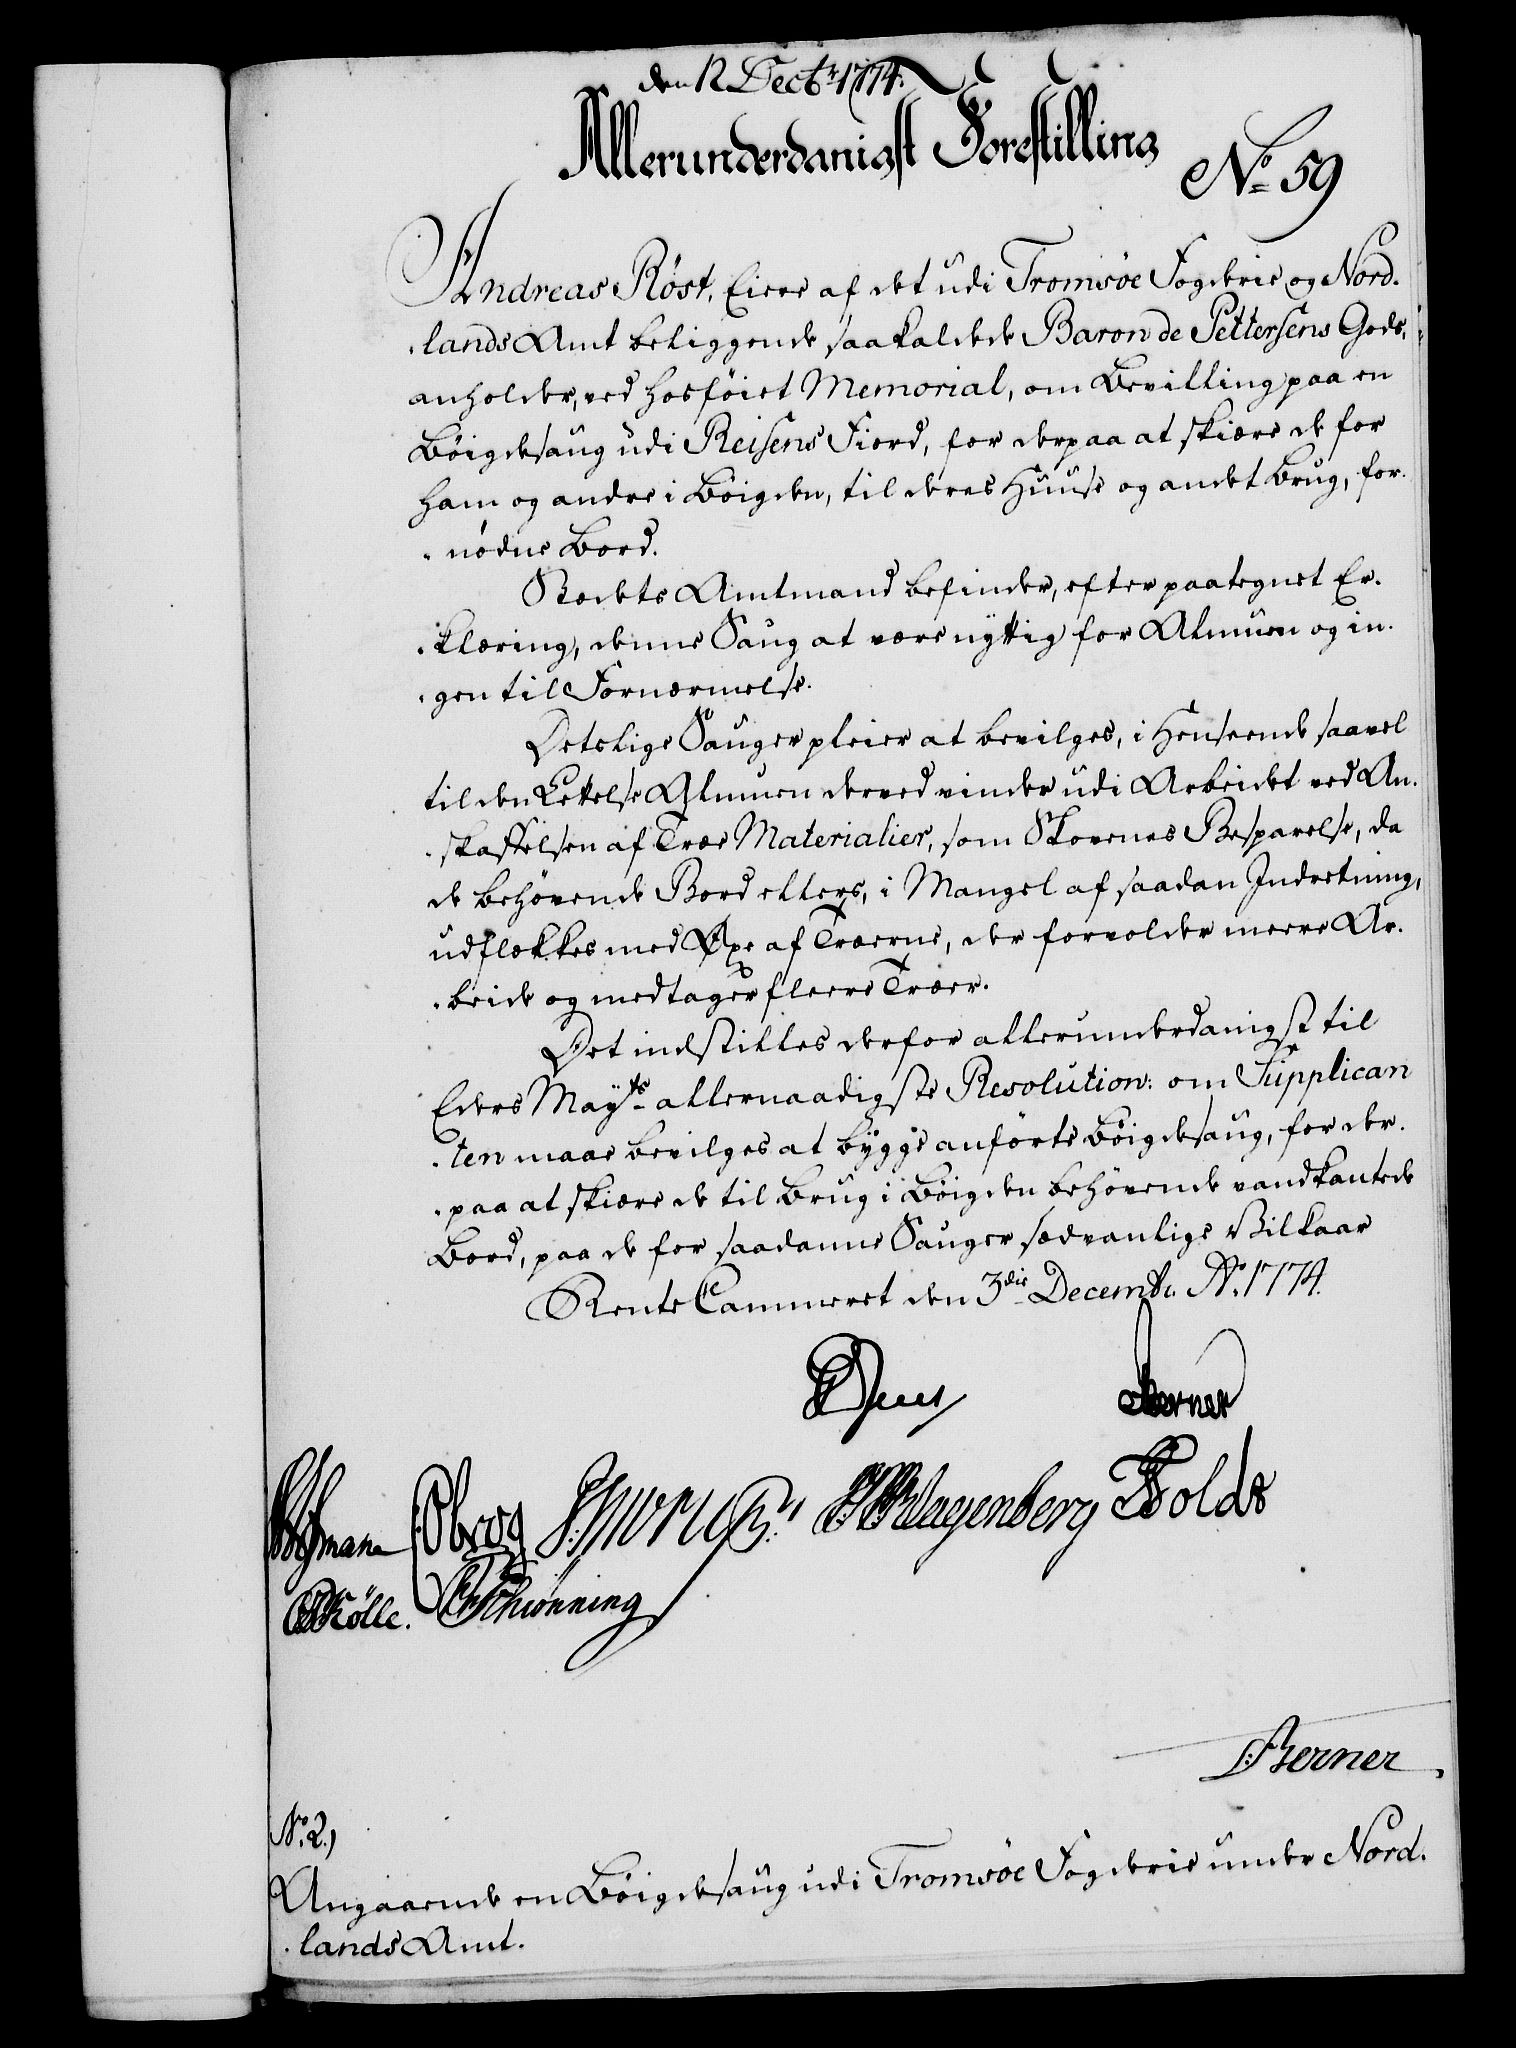 den 12 Dectr 1774.
Allerunderdanigst Forestilling
No 59
Andreas Röst, Eiere af det udi Tromsöe Fogderie og Nord-
-lands Amt beliggende saakaldede Baron de Pettersens Gods,
anholder, ved hosföiet Memorial, om Bevilling paa en
Böigdesaug udi Reisens Fiord, for derpaa at skiære de for
ham og andre i Böigden, til deres Huuse og andet Brug, for-
-nödne Bord.
Stedets Amtmand befinder, efter paategnet Er-
-klæring, denne Saug at være nyttig for Almuen og in-
-gen til Fornærmelse.
Detslige Sauger pleier at bevilges, i Henseende saavel
til den Lettelse Almuen derved vinder udi Arbeidet ved An-
-skaffelsen af Træe Materialier, som Skovenes Besparelse, da
de behövende Bord ellers, i Mangel af saadan Indretning,
udflækkes med Öxe af Træerne, der forvolder meere Ar-
-beide og medtager fleere Træer.
Det indstilles derfor allerunderdanigst til
Eders Mayts allernaadigste Resolution: om Supplican
-ten maae bevilges at bygge anförte Böigdesaug, for der-
-paa at skiære de til Brug i Böigden behövende vandkantede
Bord, paa de for saadanne Sauger sædvanlige Vilkaar
Rente Cammeret den 3die Decembr. Ao. 1774.
Berner
Klagenberg Holds
Schiönning
Berner
No. 2,
Angaaende en Böigdesaug udi Tromsöe Fogderie under Nord-
-lands Amt.